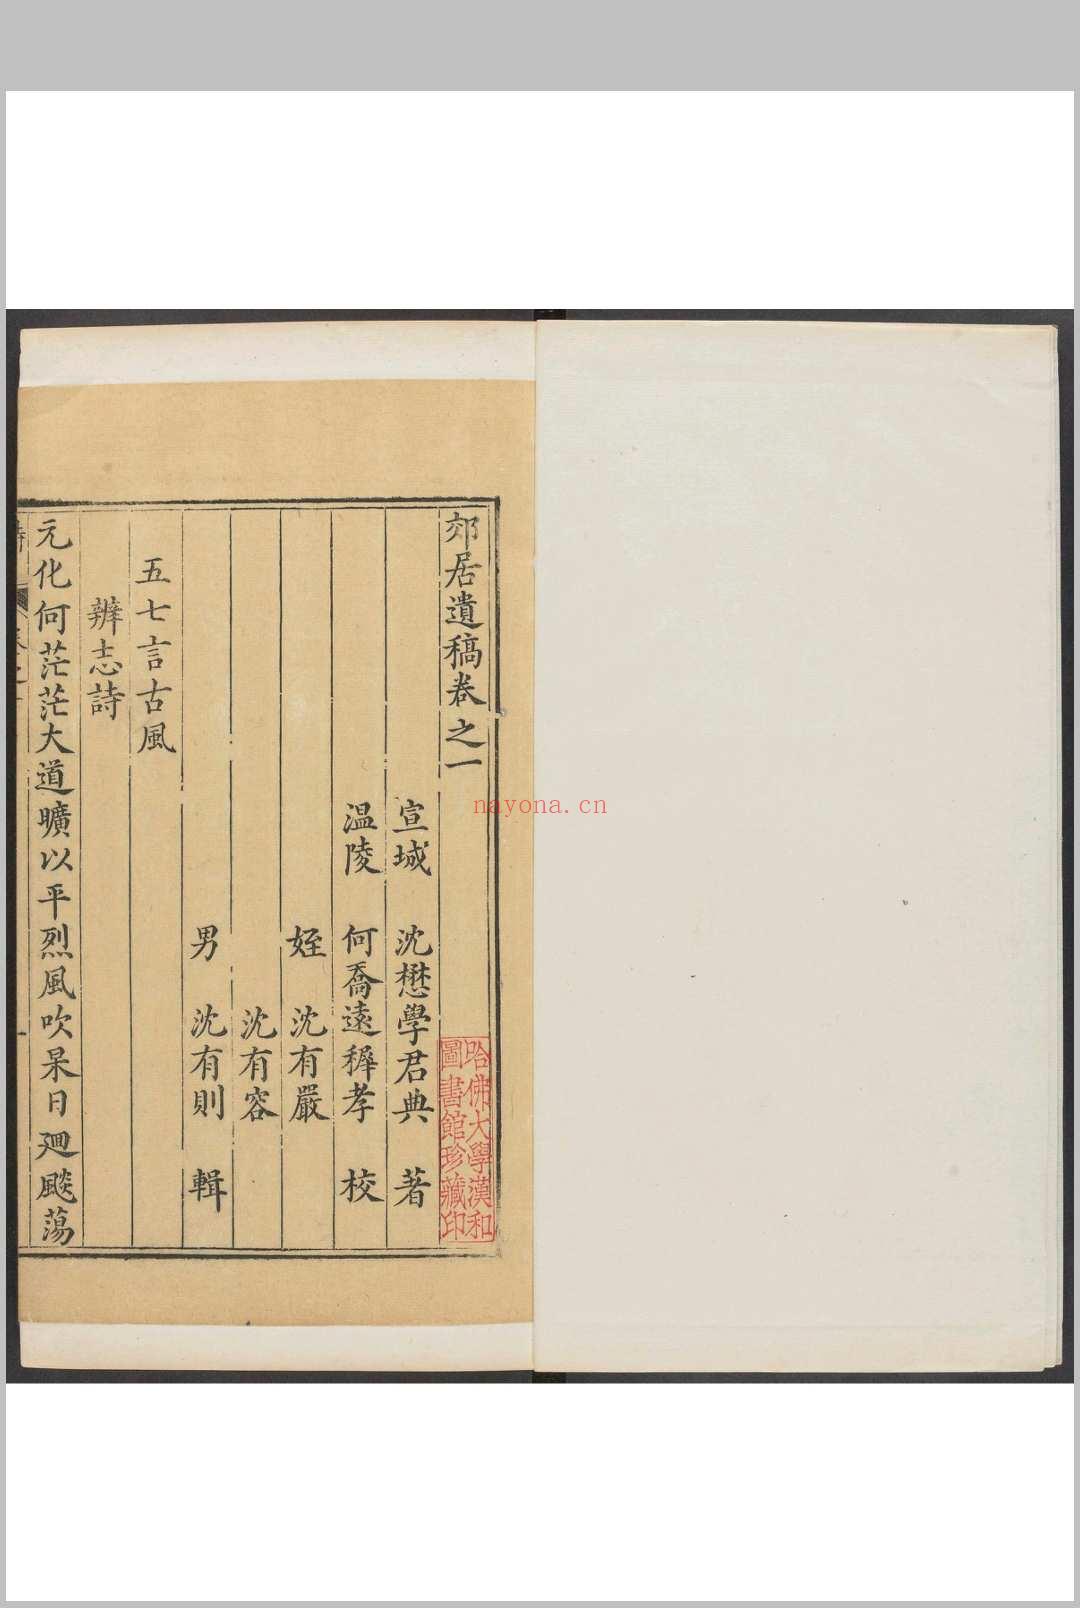 郊居遺稿卷之一
宣城 沈懋學君典 著
温陵 何喬遠穉孝 校
姪 沈有嚴
沈有容
男 沈有則 輯
五七言古風
辨志詩
元化何茫茫大道曠以平烈風吹杲日廻飈蕩
哈佛大學漢和
圖書館珍藏印
nayona.cn